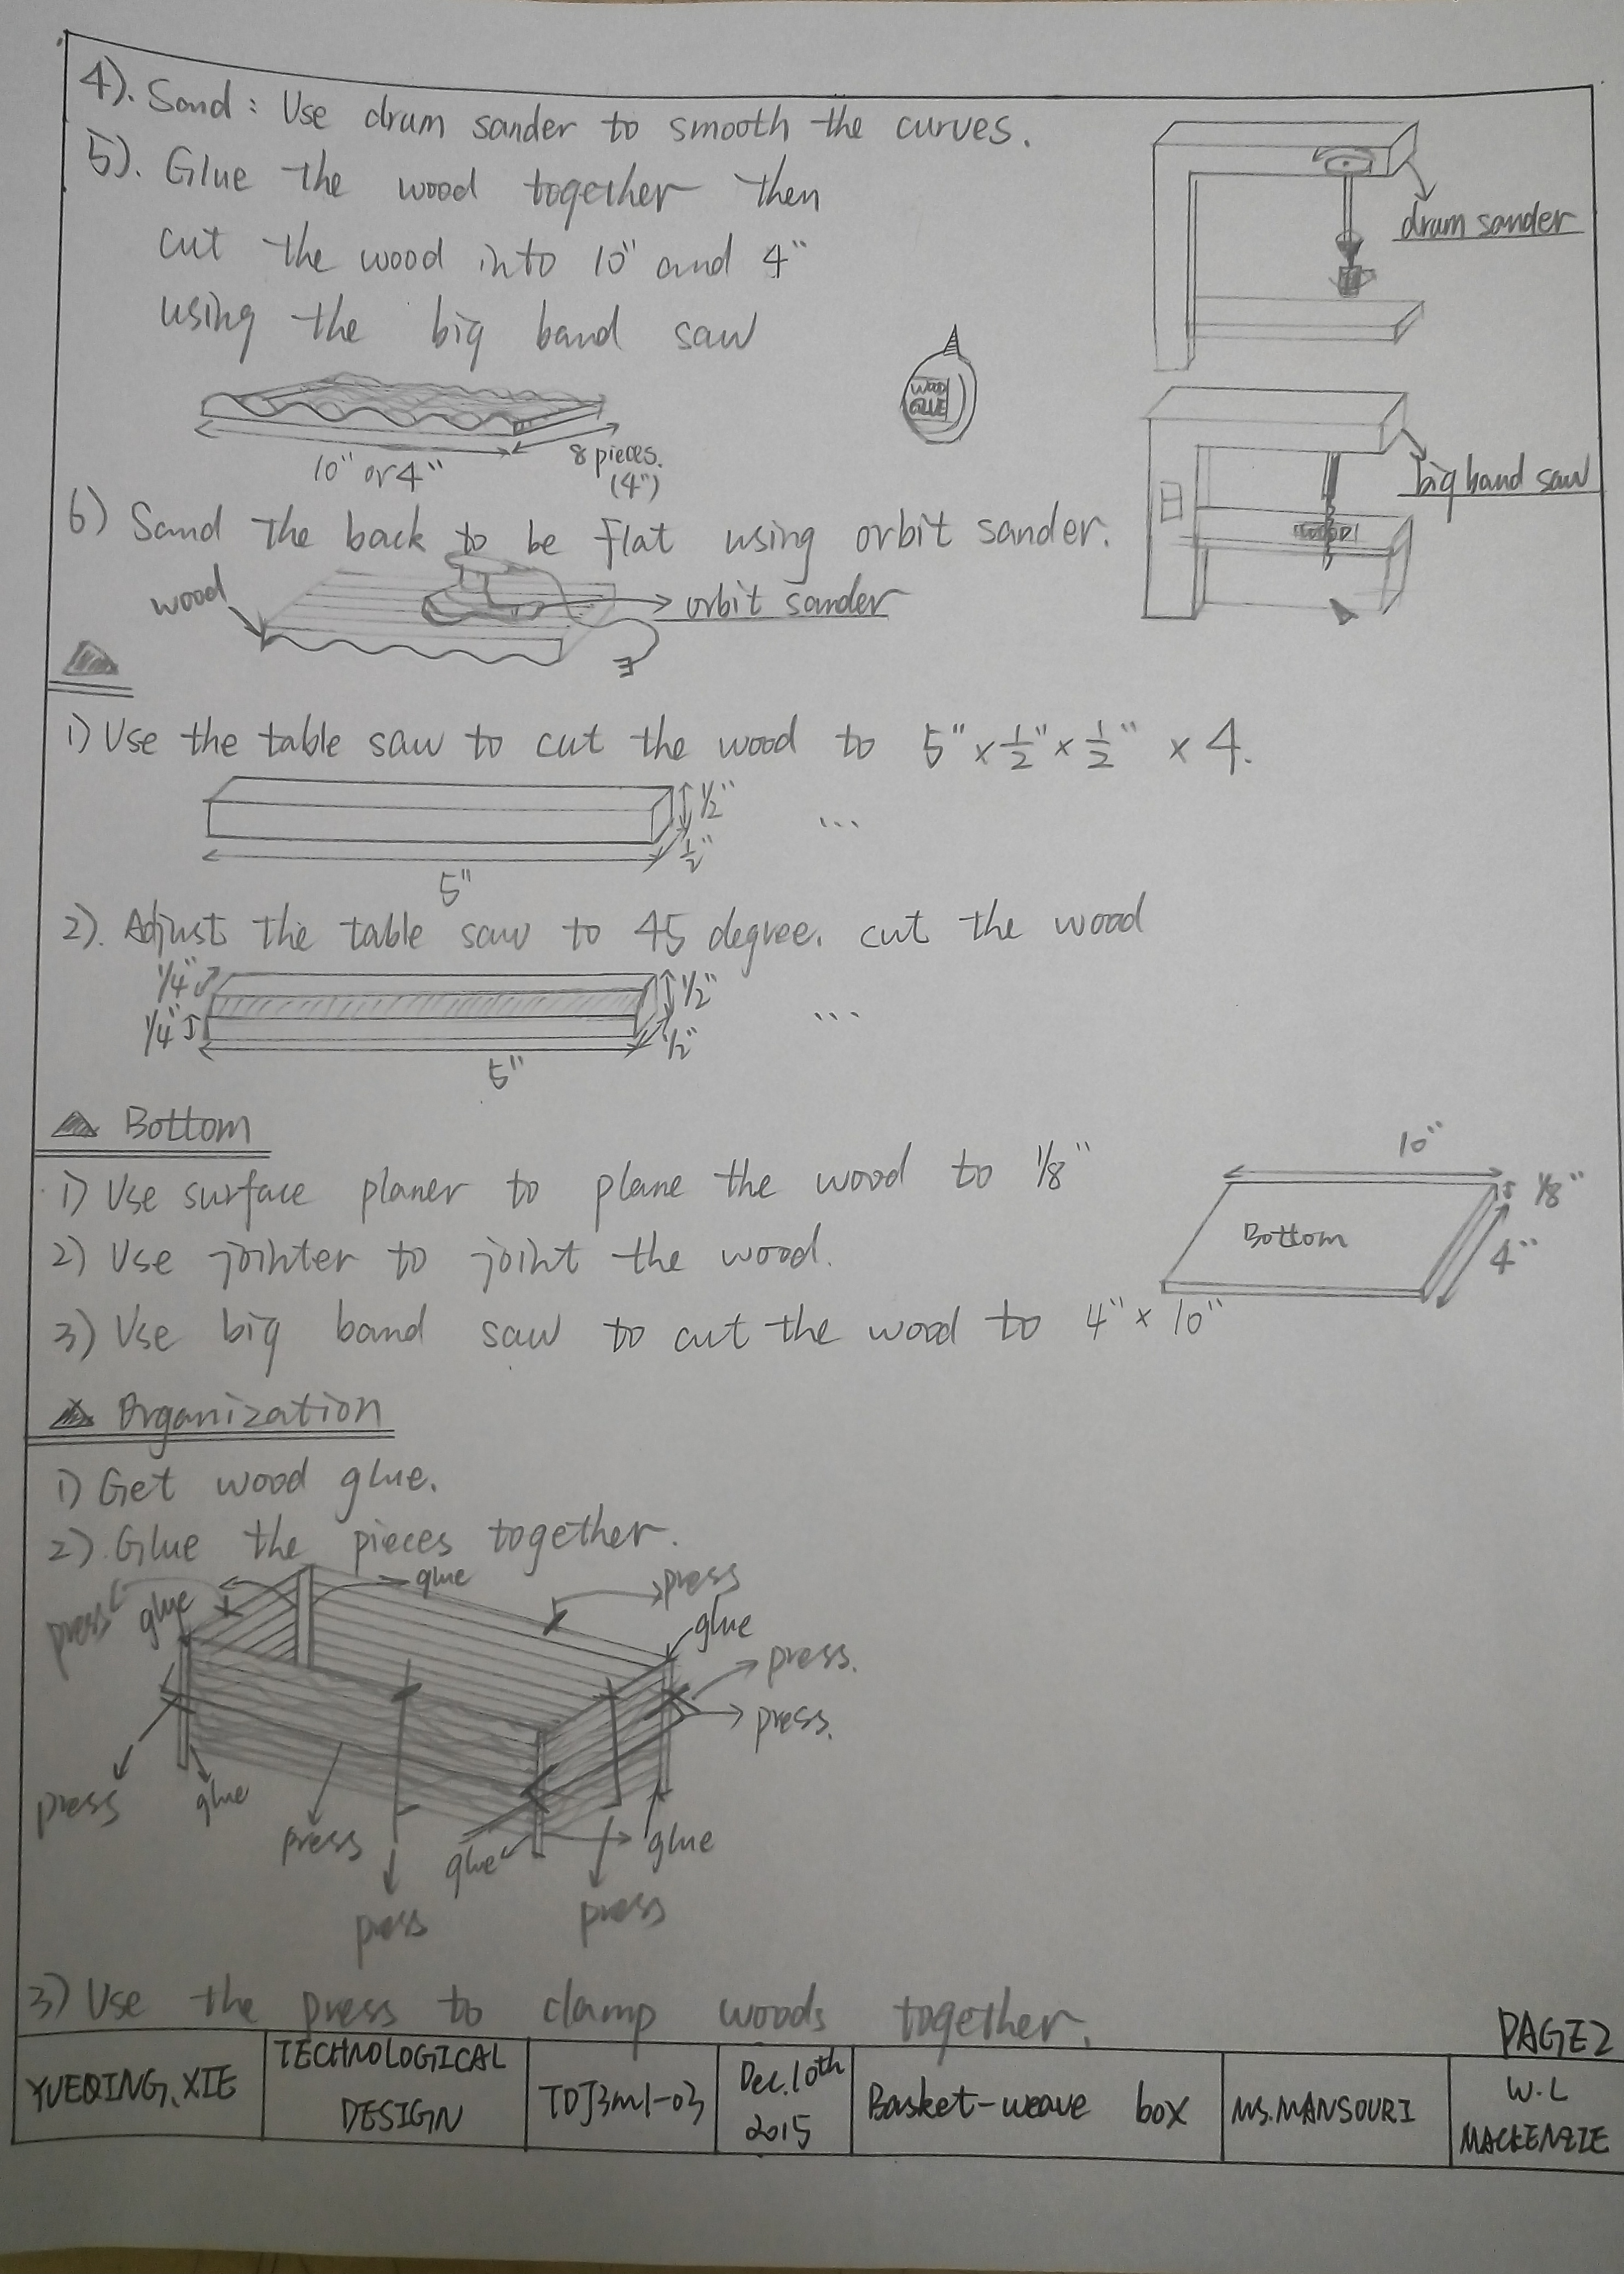 4). Sand: Use drum sander to smooth the curves.
5). Glue the wood together then
cut the wood into 10" and 4"
using the big band saw
drum sander
WOOD
GLUE
10" or 4"
8 pieces.
(4")
big band saw
WOOD
6) Sand the back to be flat using orbit sander.
wood
orbit sander
1) Use the table saw to cut the wood to 5" x 1/2" x 1/2" x 4.
1/2"
1/2"
...
5"
2). Adjust the table saw to 45 degree. cut the wood
1/4"
1/4"
1/2"
1/2"
...
5"
Bottom
1) Use surface planer to plane the wood to 1/8"
2) Use jointer to joint the wood.
3) Use big band saw to cut the wood to 4" x 10"
10"
1/8"
4"
Bottom
Organization
1) Get wood glue.
2). Glue the pieces together.
press
glue
glue
press
glue
press.
press.
press
glue
press
glue
glue
press
press
3) Use the press to clamp woods together.
PAGE2
YUEQING.XIE
TECHNOLOGICAL
DESIGN
TDJ3m1-03
Dec.10th
2015
Basket-weave box
MS.MANSOURI
W.L
MACKENZIE